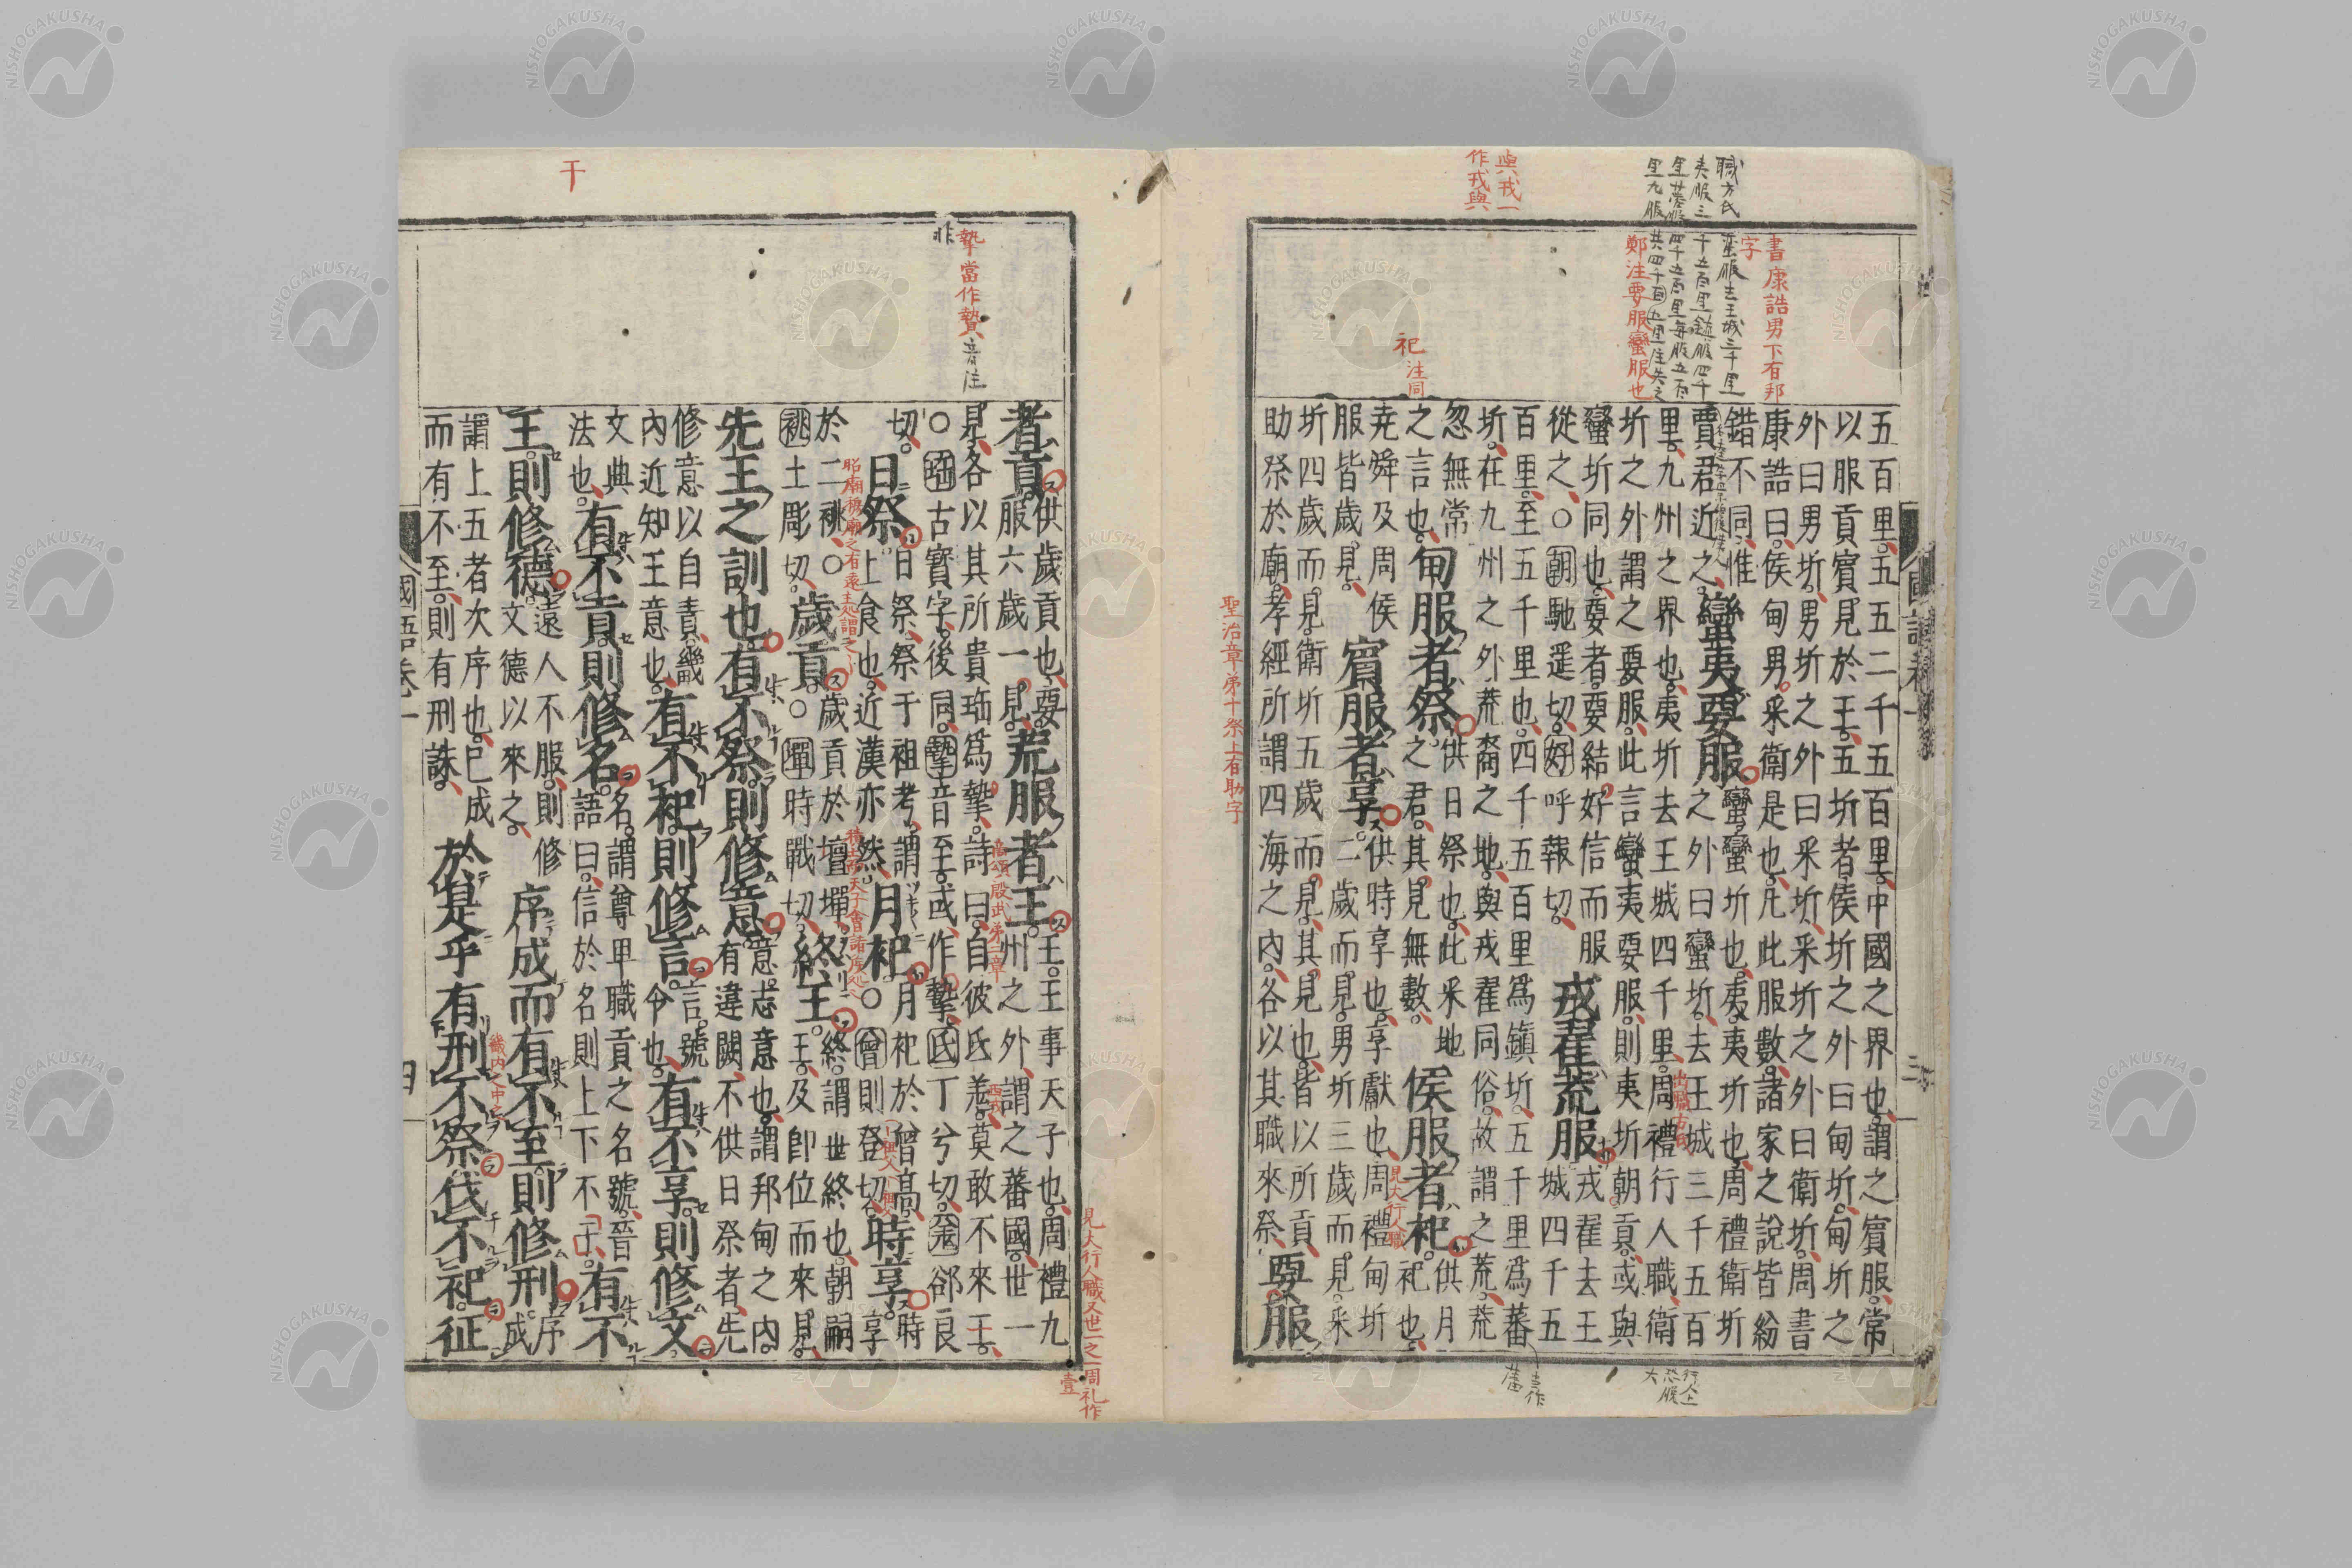 職方氏蠻服去王城三千里
夷服三千五百里鎮服四千
里蕃服四千五百里每服五百
里九服共四千百五里注失之
書康誥男下有邦
字
鄭注要服蠻服也
與戎一
作戎與
祀注同
五百里五五二千五百里中國之界也謂之賓服常
以服貢賓見於王五圻者侯圻之外曰甸圻甸圻之
外曰男圻男圻之外曰采圻采圻之外曰衛圻周書
康誥曰侯甸男采衛是也凡此服數諸家之說皆紛
錯不同惟
賈君近之
蠻夷要服
蠻蠻圻也夷夷圻也周禮衛圻
之外曰蠻圻去王城三千五百
里九州之界也夷圻去王城四千里周禮行人職衛
圻之外謂之要服此言蠻夷要服則夷圻朝貢或與
蠻圻同也要者要結好信而服
從之○朝馳遥切好呼報切
戎翟荒服
戎翟去王
城四千五
百里至五千里也四千五百里爲鎮圻五千里爲蕃
圻在九州之外荒裔之地與戎翟同俗故謂之荒荒
忽無常
之言也
甸服者祭
供日祭也此采地
之君其見無數
侯服者祀
供月
祀也
堯舜及周侯
服皆歲見
賓服者享
供時享也享獻也周禮甸圻
二歲而見男圻三歲而見采
圻四歲而見衛圻五歲而見其見也皆以所貢
助祭於廟孝經所謂四海之内各以其職來祭
要服
出職方氏
見大行人職
聖治章第十祭上有助字
國語卷一
三
干
摯當作贄音注
者貢
供歲貢也要
服六歲一見
荒服者王
王王事天子也周禮九
州之外謂之蕃國世一
見各以其所貴珤爲摯詩曰自彼氐羌莫敢不來王
○珤古寳字後同摯音至或作摯氐丁兮切羌郤良
切
日祭
日祭祭于祖考謂
上食也近漢亦然
月祀
月祀於曾高
○曾則登切
時享
時
享
於二祧○
祧土彫切
歲貢
歲貢於壇墠
○墠時戰切
終王
終謂世終也朝嗣
王及卽位而來見
先王之訓也有不祭則修意
意志意也謂邦甸之内
有違闕不供日祭者先
修意以自責畿
内近知王意也
有不祀則修言
言號
令也
有不享則修文
文典
法也
有不貢則修名
名謂尊卑職貢之名號晉
語曰信於名則上下不干
有不
王則修德
遠人不服則修
文德以來之
序成而有不至則修刑
序
成
謂上五者次序也已成
而有不至則有刑誅
於是乎有刑不祭伐不祀征
見大行人職又世一之一周礼作
壹
商頌殷武第二章
西戎
國語卷一
四
NISHOGAKUSHA